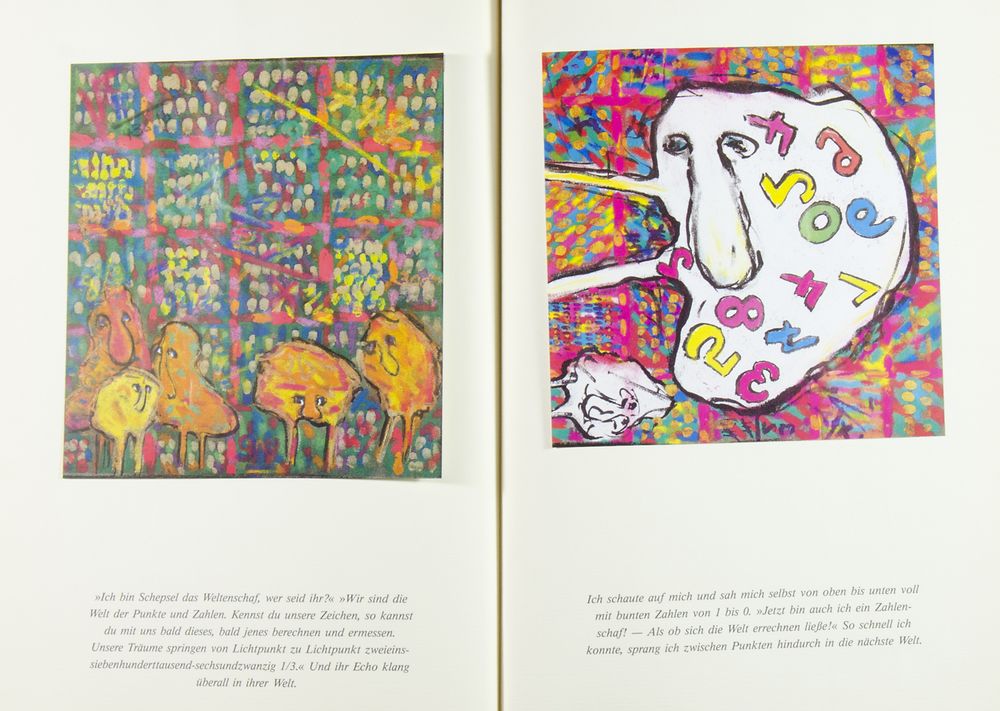 »Ich bin Schepsel das Weltenschaf, wer seid ihr?« »Wir sind die
Welt der Punkte und Zahlen. Kennst du unsere Zeichen, so kannst
du mit uns bald dieses, bald jenes berechnen und ermessen.
Unsere Träume springen von Lichtpunkt zu Lichtpunkt zweieins-
siebenhunderttausend-sechsundzwanzig 1/3.« Und ihr Echo klang
überall in ihrer Welt.
Ich schaute auf mich und sah mich selbst von oben bis unten voll
mit bunten Zahlen von 1 bis 0. »Jetzt bin auch ich ein Zahlen-
schaf! — Als ob sich die Welt errechnen ließe!« So schnell ich
konnte, sprang ich zwischen Punkten hindurch in die nächste Welt.